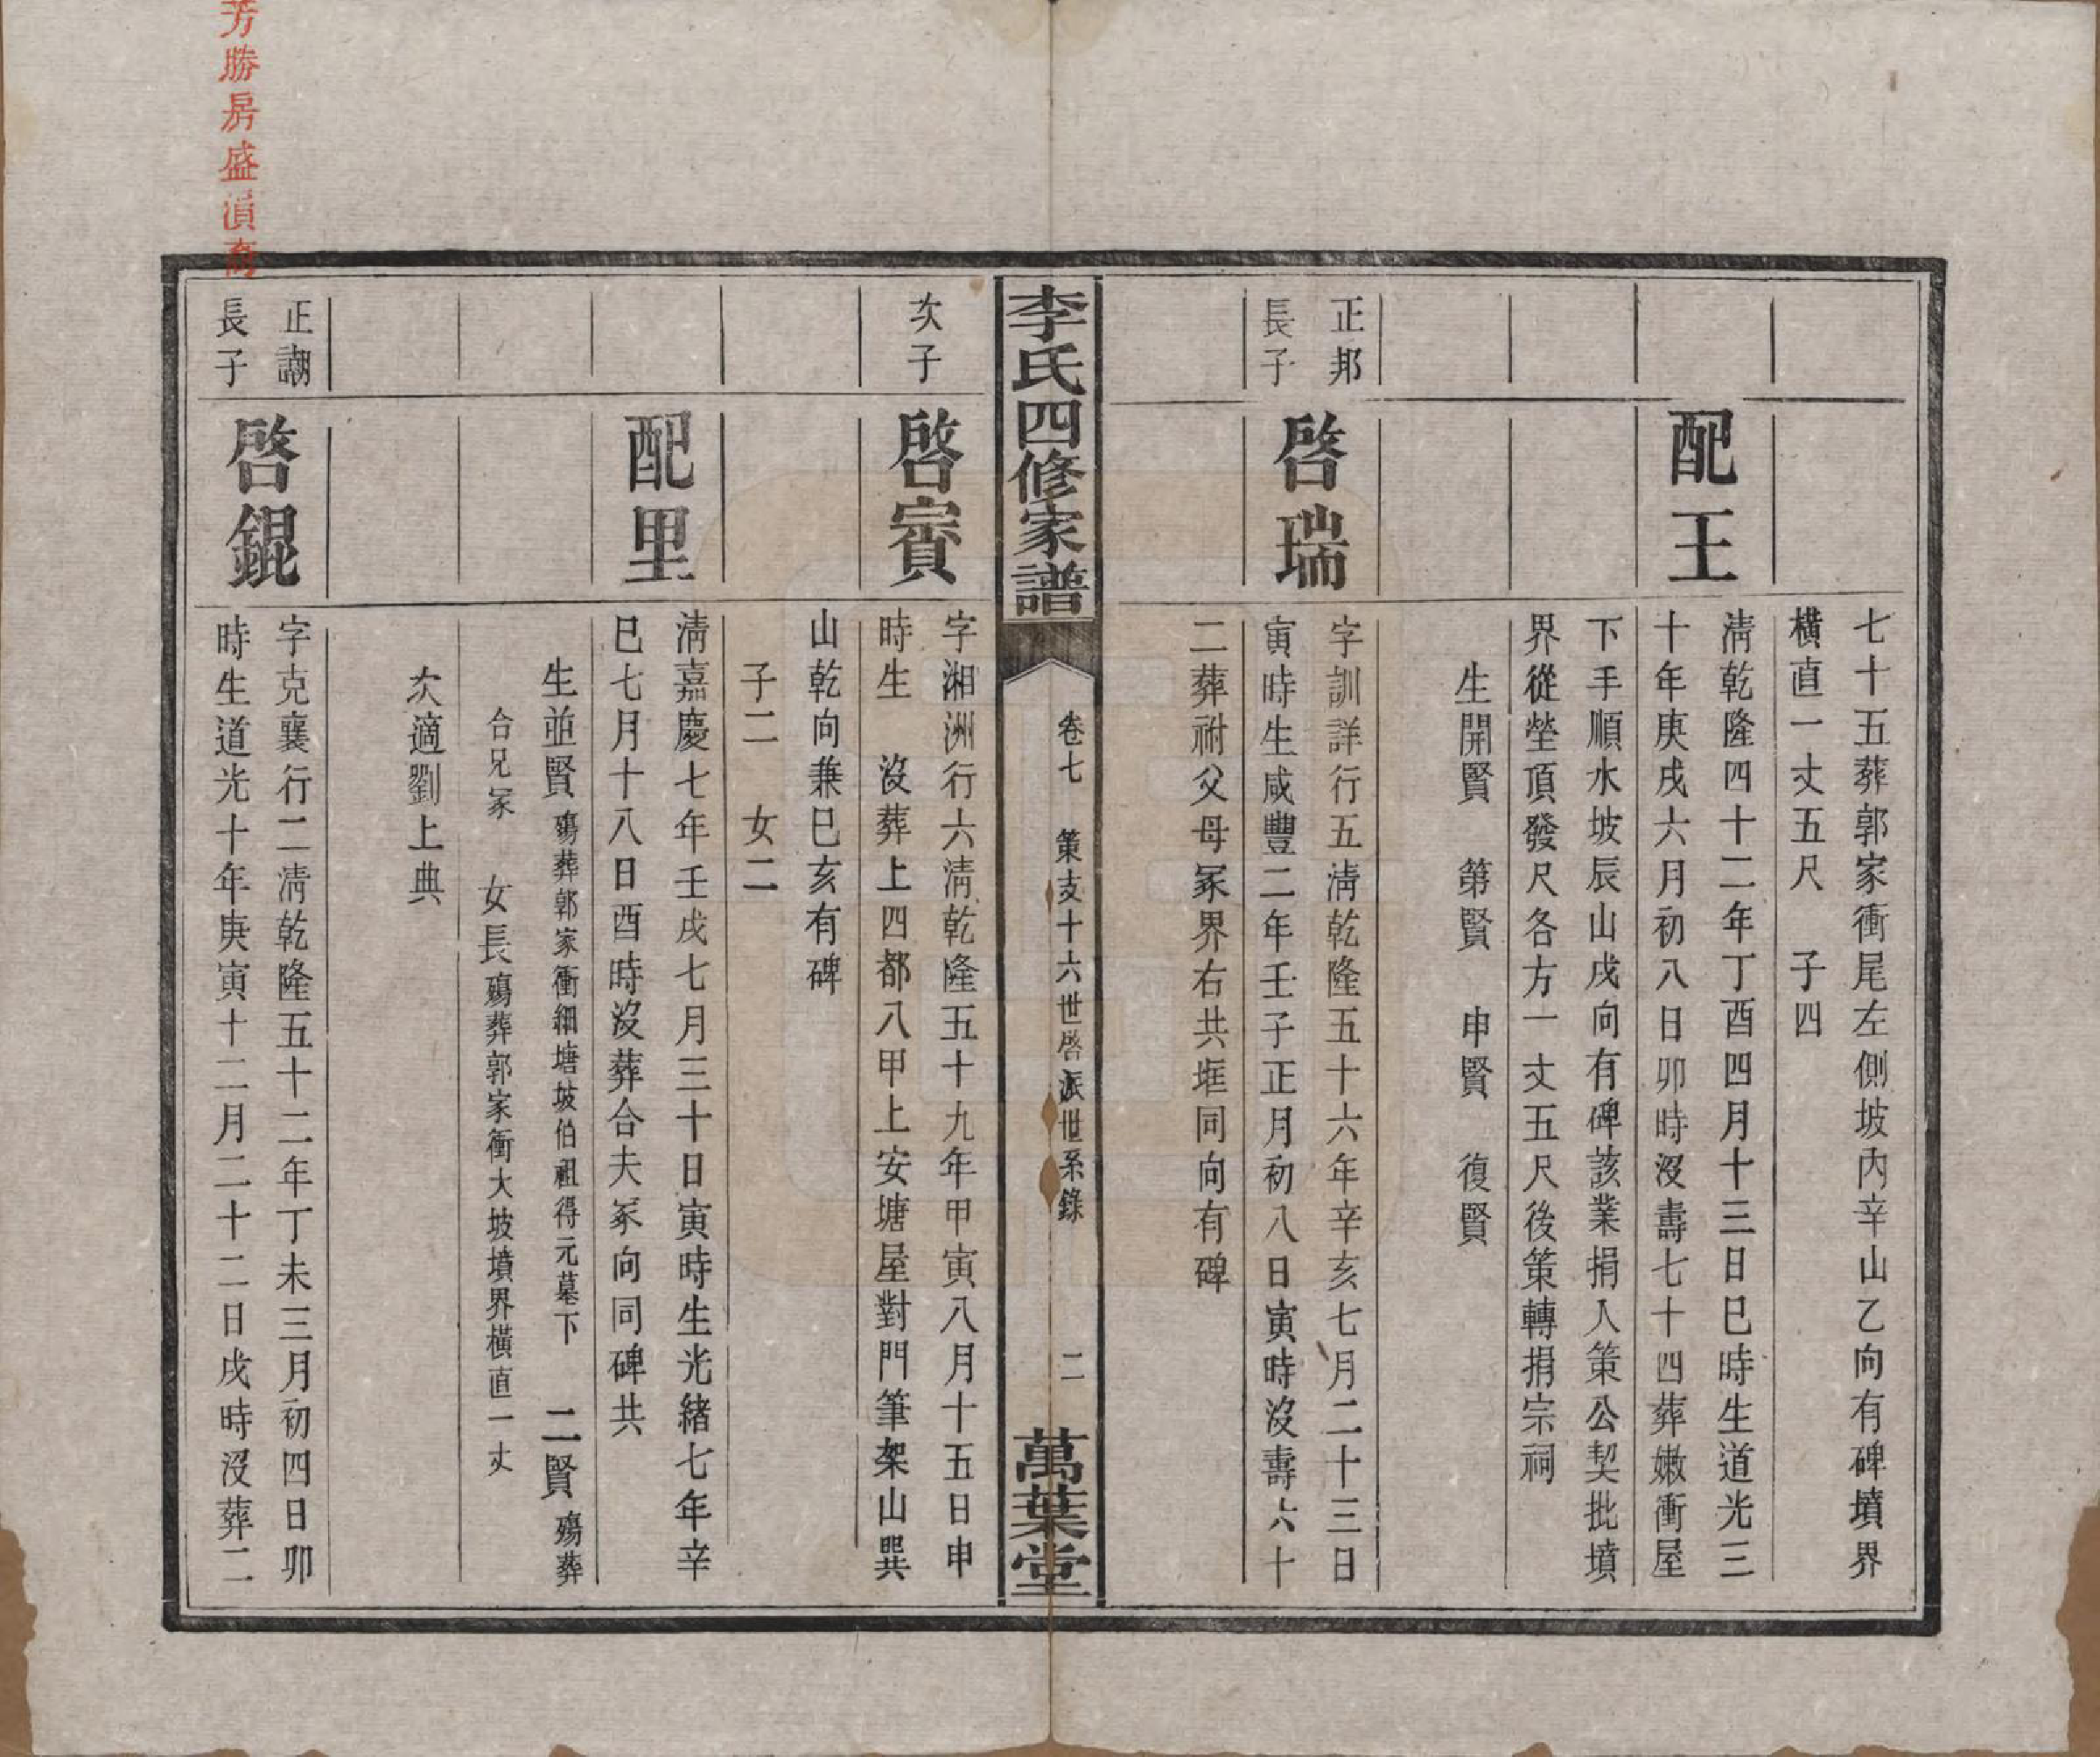 七十五葬郭家衝尾左側坡內辛山乙向有碑墳界
橫直一丈五尺　子四
配王
清乾隆四十二年丁酉四月十三日巳時生道光三
十年庚戌六月初八日卯時沒壽七十四葬嫩衝屋
下手順水坡辰山戌向有碑該業捐入策公契批墳
界從塋頂發尺各方一丈五尺後策轉捐宗祠
生開賢　第賢　申賢　復賢
正邦
長子
啓瑞
字訓詳行五清乾隆五十六年辛亥七月二十三日
寅時生咸豐二年壬子正月初八日寅時沒壽六十
二葬祔父母冢界右共堆同向有碑
李氏四修家譜
卷七　策支十六世啓派世系錄　二
萬葉堂
次子
啓賓
字湘洲行六清乾隆五十九年甲寅八月十五日申
時生　沒葬上四都八甲上安塘屋對門筆架山巽
山乾向兼巳亥有碑
子二　女二
配里
清嘉慶七年壬戌七月三十日寅時生光緒七年辛
巳七月十八日酉時沒葬合夫冢向同碑共
生並賢殤葬郭家衝細塘坡伯祖得元墓下　二賢殤葬
合兄冢　女長殤葬郭家衝大坡墳界橫直一丈
次適劉上典
正謝
長子
啓錕
字克襄行二清乾隆五十二年丁未三月初四日卯
時生道光十年庚寅十二月二十二日戌時沒葬二
芳勝房盛湏裔